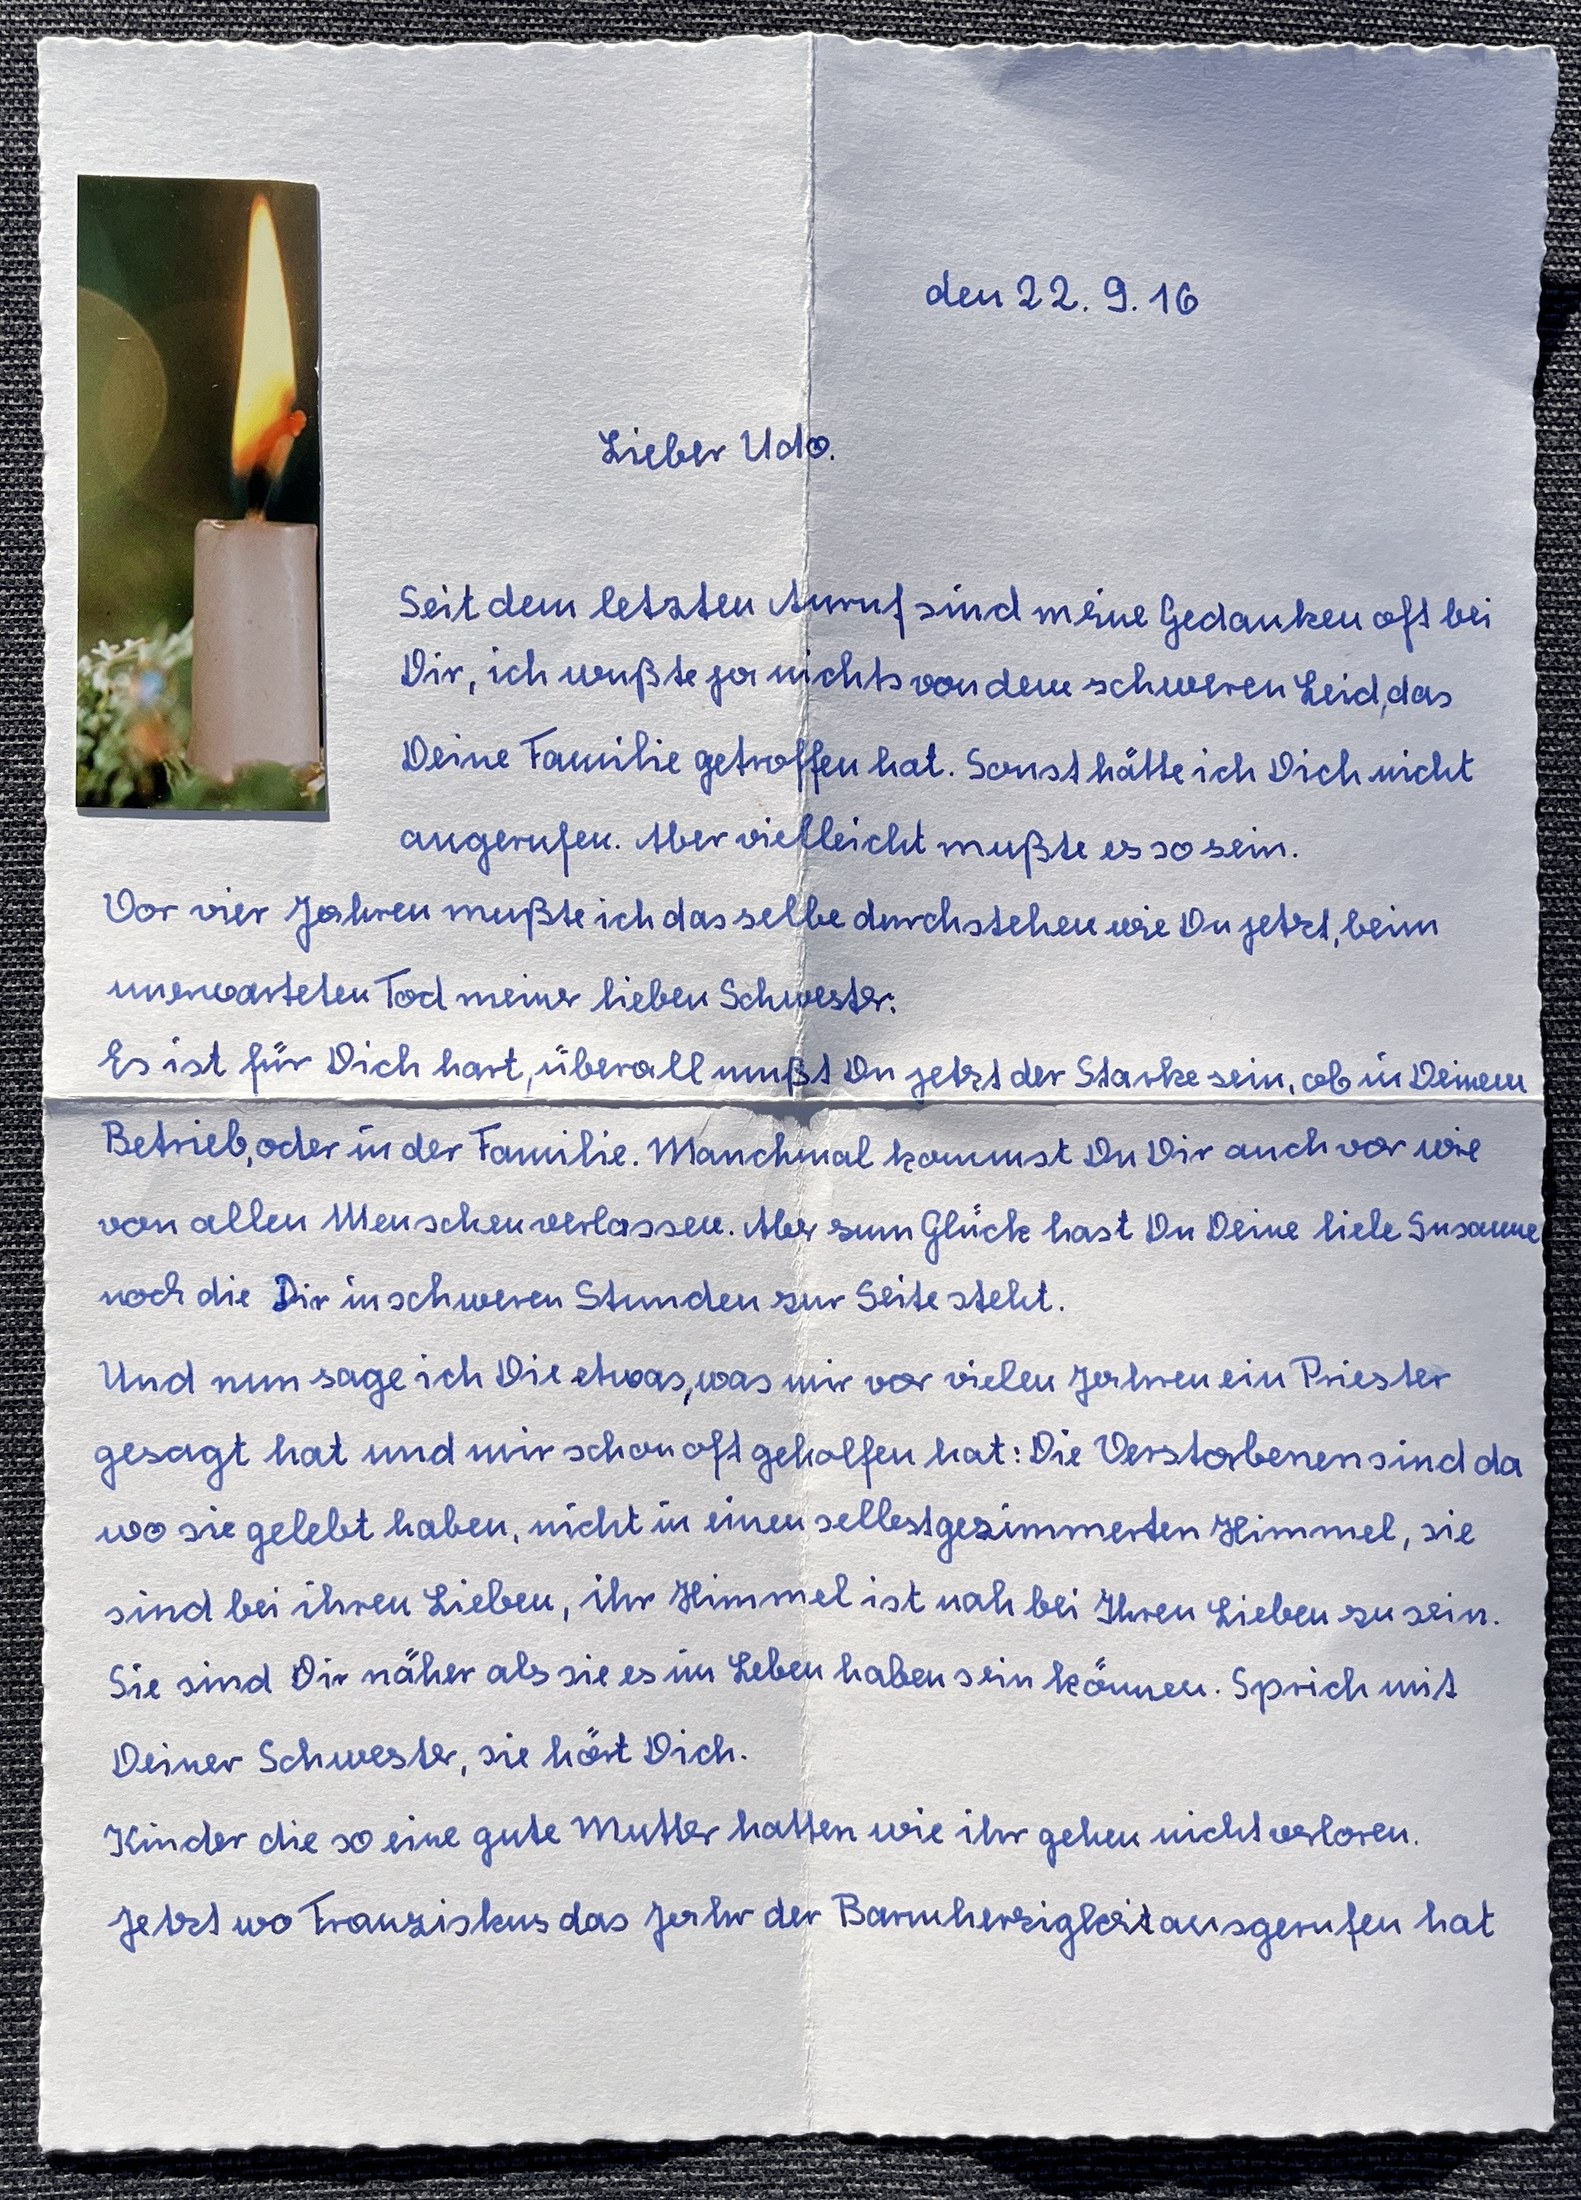 den 22. 9. 16
Lieber Udo.
Seit dem letzten Anruf sind meine Gedanken oft bei
Dir, ich wußte ja nichts von dem schweren Leid, das
Deine Familie getroffen hat. Sonst hätte ich Dich nicht
angerufen. Aber vielleicht mußte es so sein.
Vor vier Jahren mußte ich das selbe durchstehen wie Du jetzt, beim
unerwarteten Tod meiner lieben Schwester.
Es ist für Dich hart, überall mußt Du jetzt der Starke sein, ob in Deinem
Betrieb, oder in der Familie. Manchmal kommst Du Dir auch vor wie
von allen Menschen verlassen. Aber zum Glück hast Du Deine liebe Susanne
noch die Dir in schweren Stunden zur Seite steht.
Und nun sage ich Die etwas, was mir vor vielen Jahren ein Priester
gesagt hat und mir schon oft geholfen hat: Die Verstorbenen sind da
wo sie gelebt haben, nicht in einen selbstgezimmerten Himmel, sie
sind bei ihren Lieben, ihr Himmel ist nah bei Ihren Lieben zu sein.
Sie sind Dir näher als sie es im Leben haben sein können. Sprich mit
Deiner Schwester, sie hört Dich.
Kinder die so eine gute Mutter hatten wie ihr gehen nicht verloren.
Jetzt wo Franziskus das Jahr der Barmherzigkeit ausgerufen hat